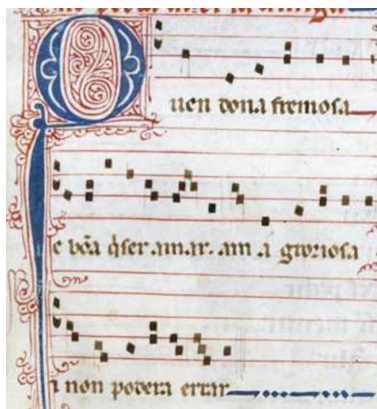 Quen dona fremosa
e bõa q̃ser amar. am a groriosa
i non podera errar